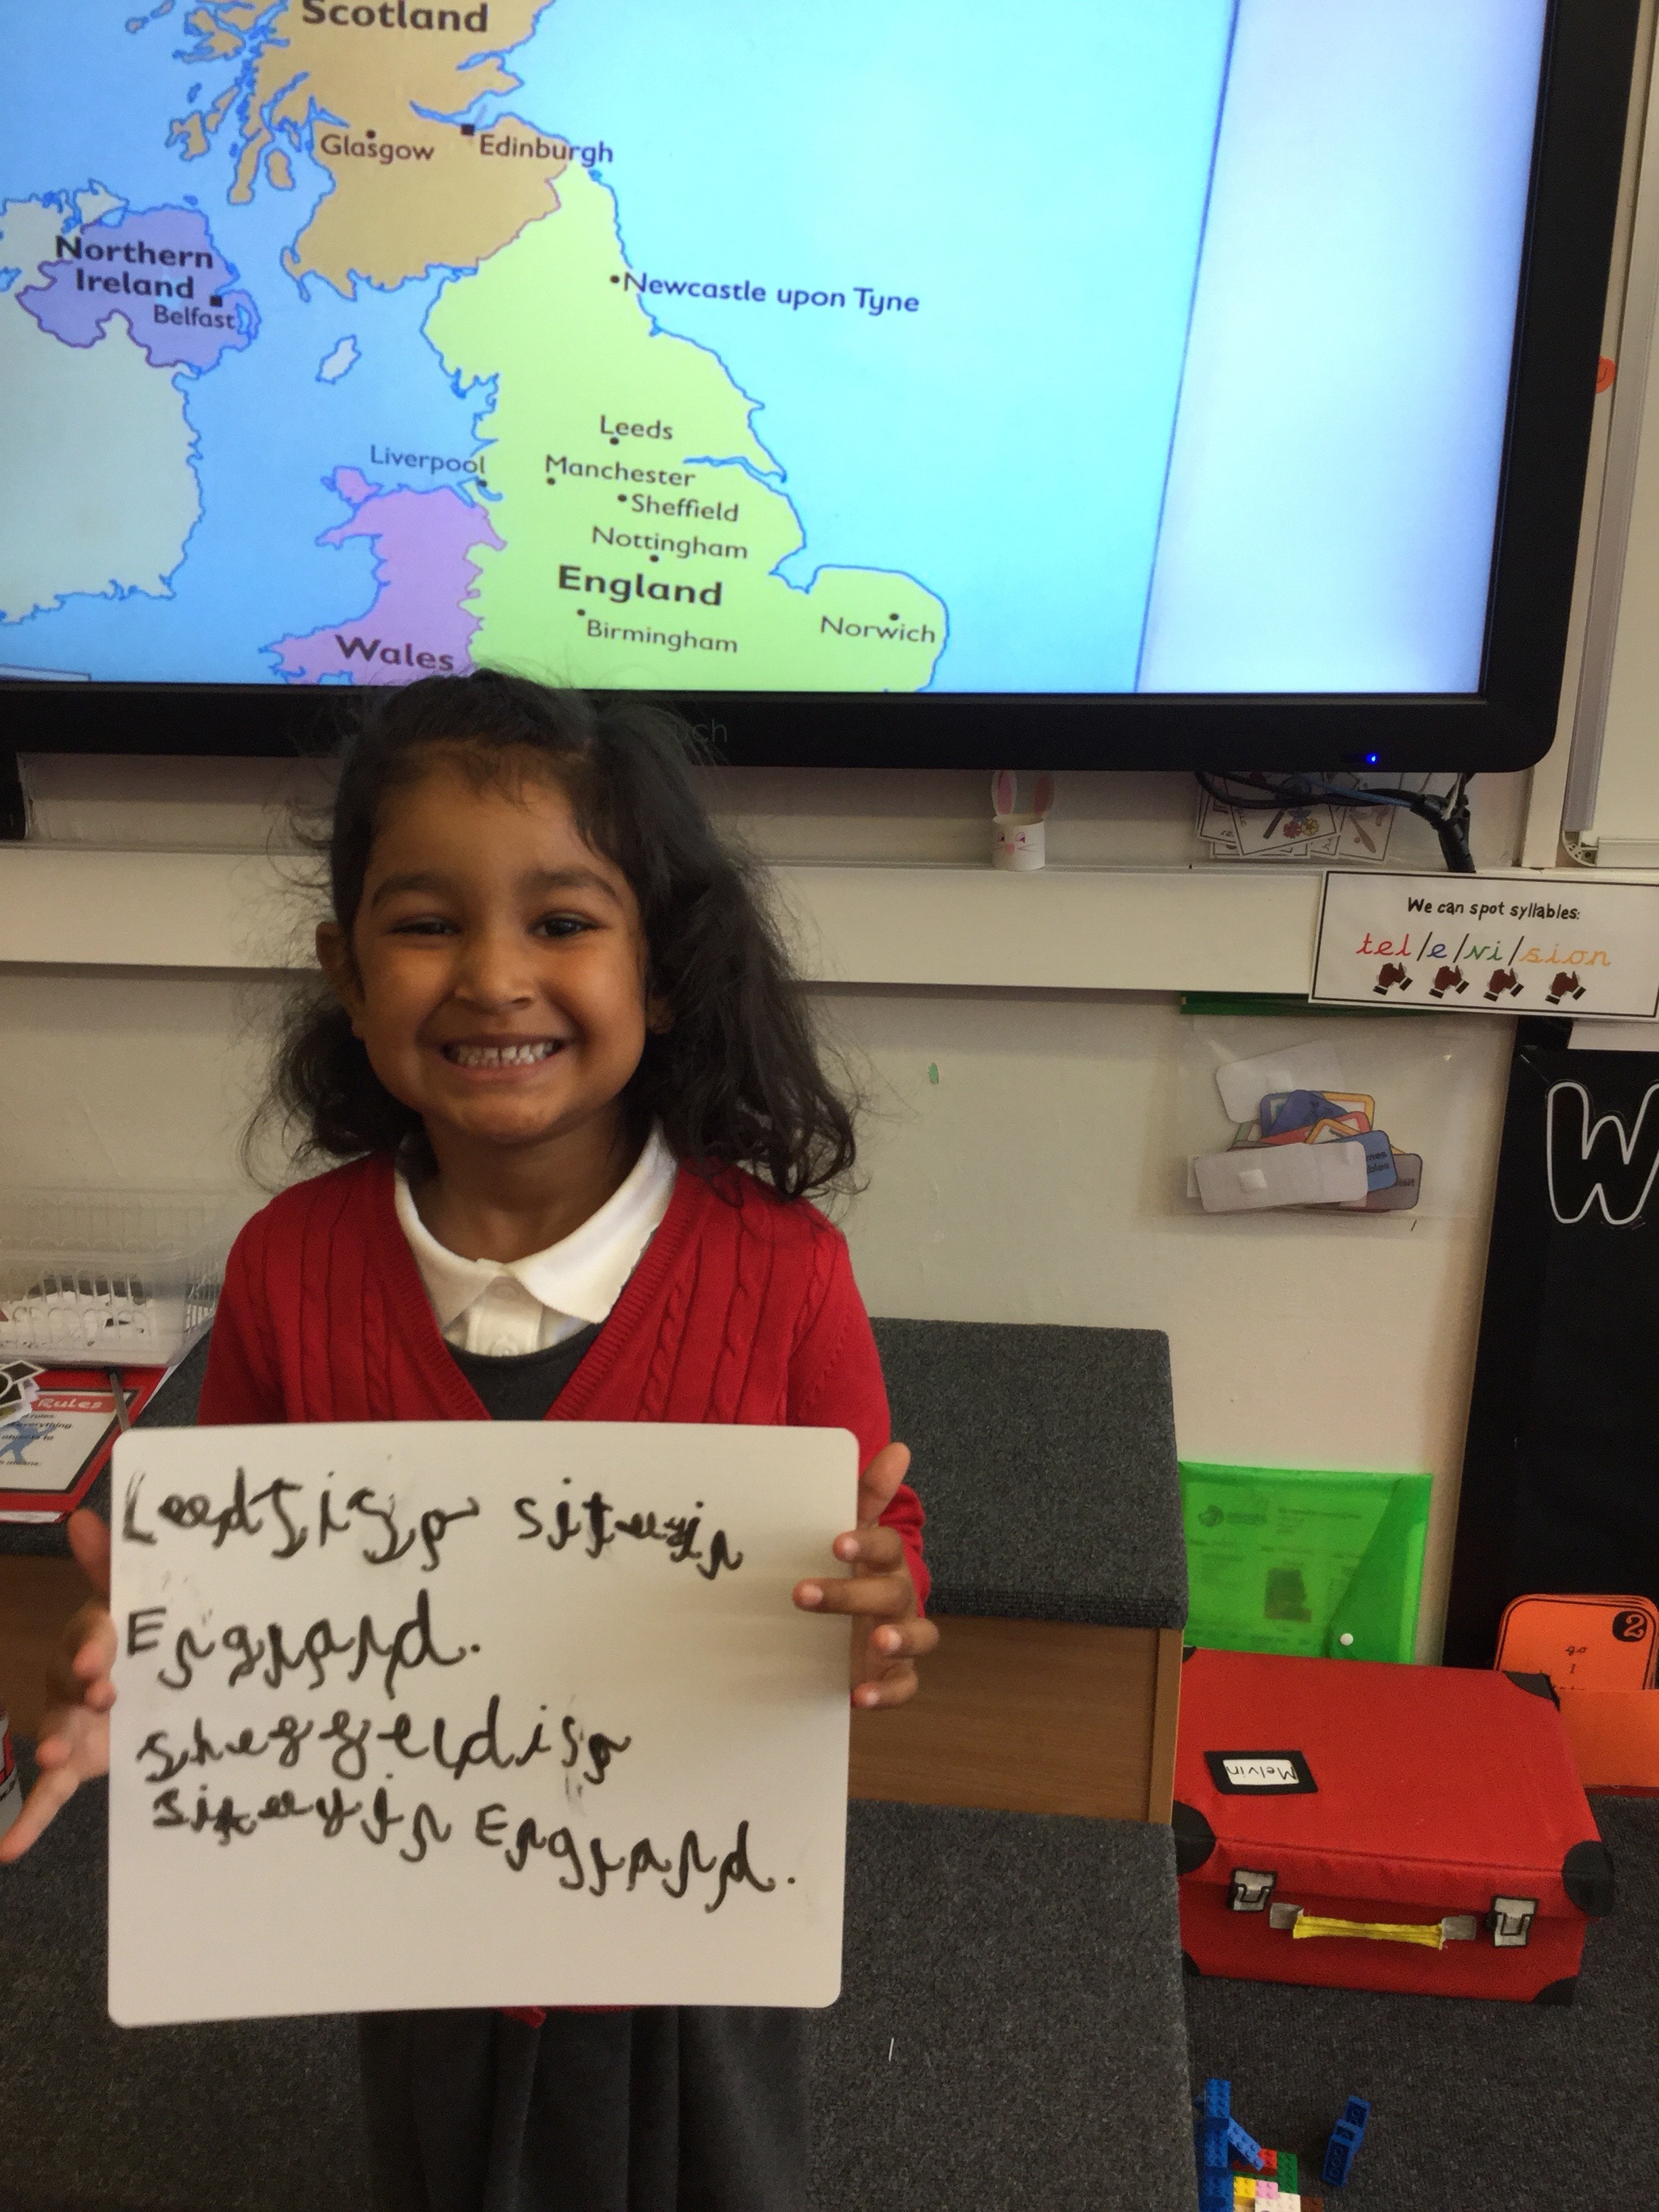 Scotland
Glasgow
Edinburgh
Northern
Ireland
Belfast
Newcastle upon Tyne
Leeds
Liverpool
Manchester
Sheffield
Nottingham
England
Birmingham
Norwich
Wales
We can spot syllables:
tel/e/vi/sion
W
Rules
Leeds is a siteey in
England.
sheffeld is a
siteey in England.
Melvin
2
go
I